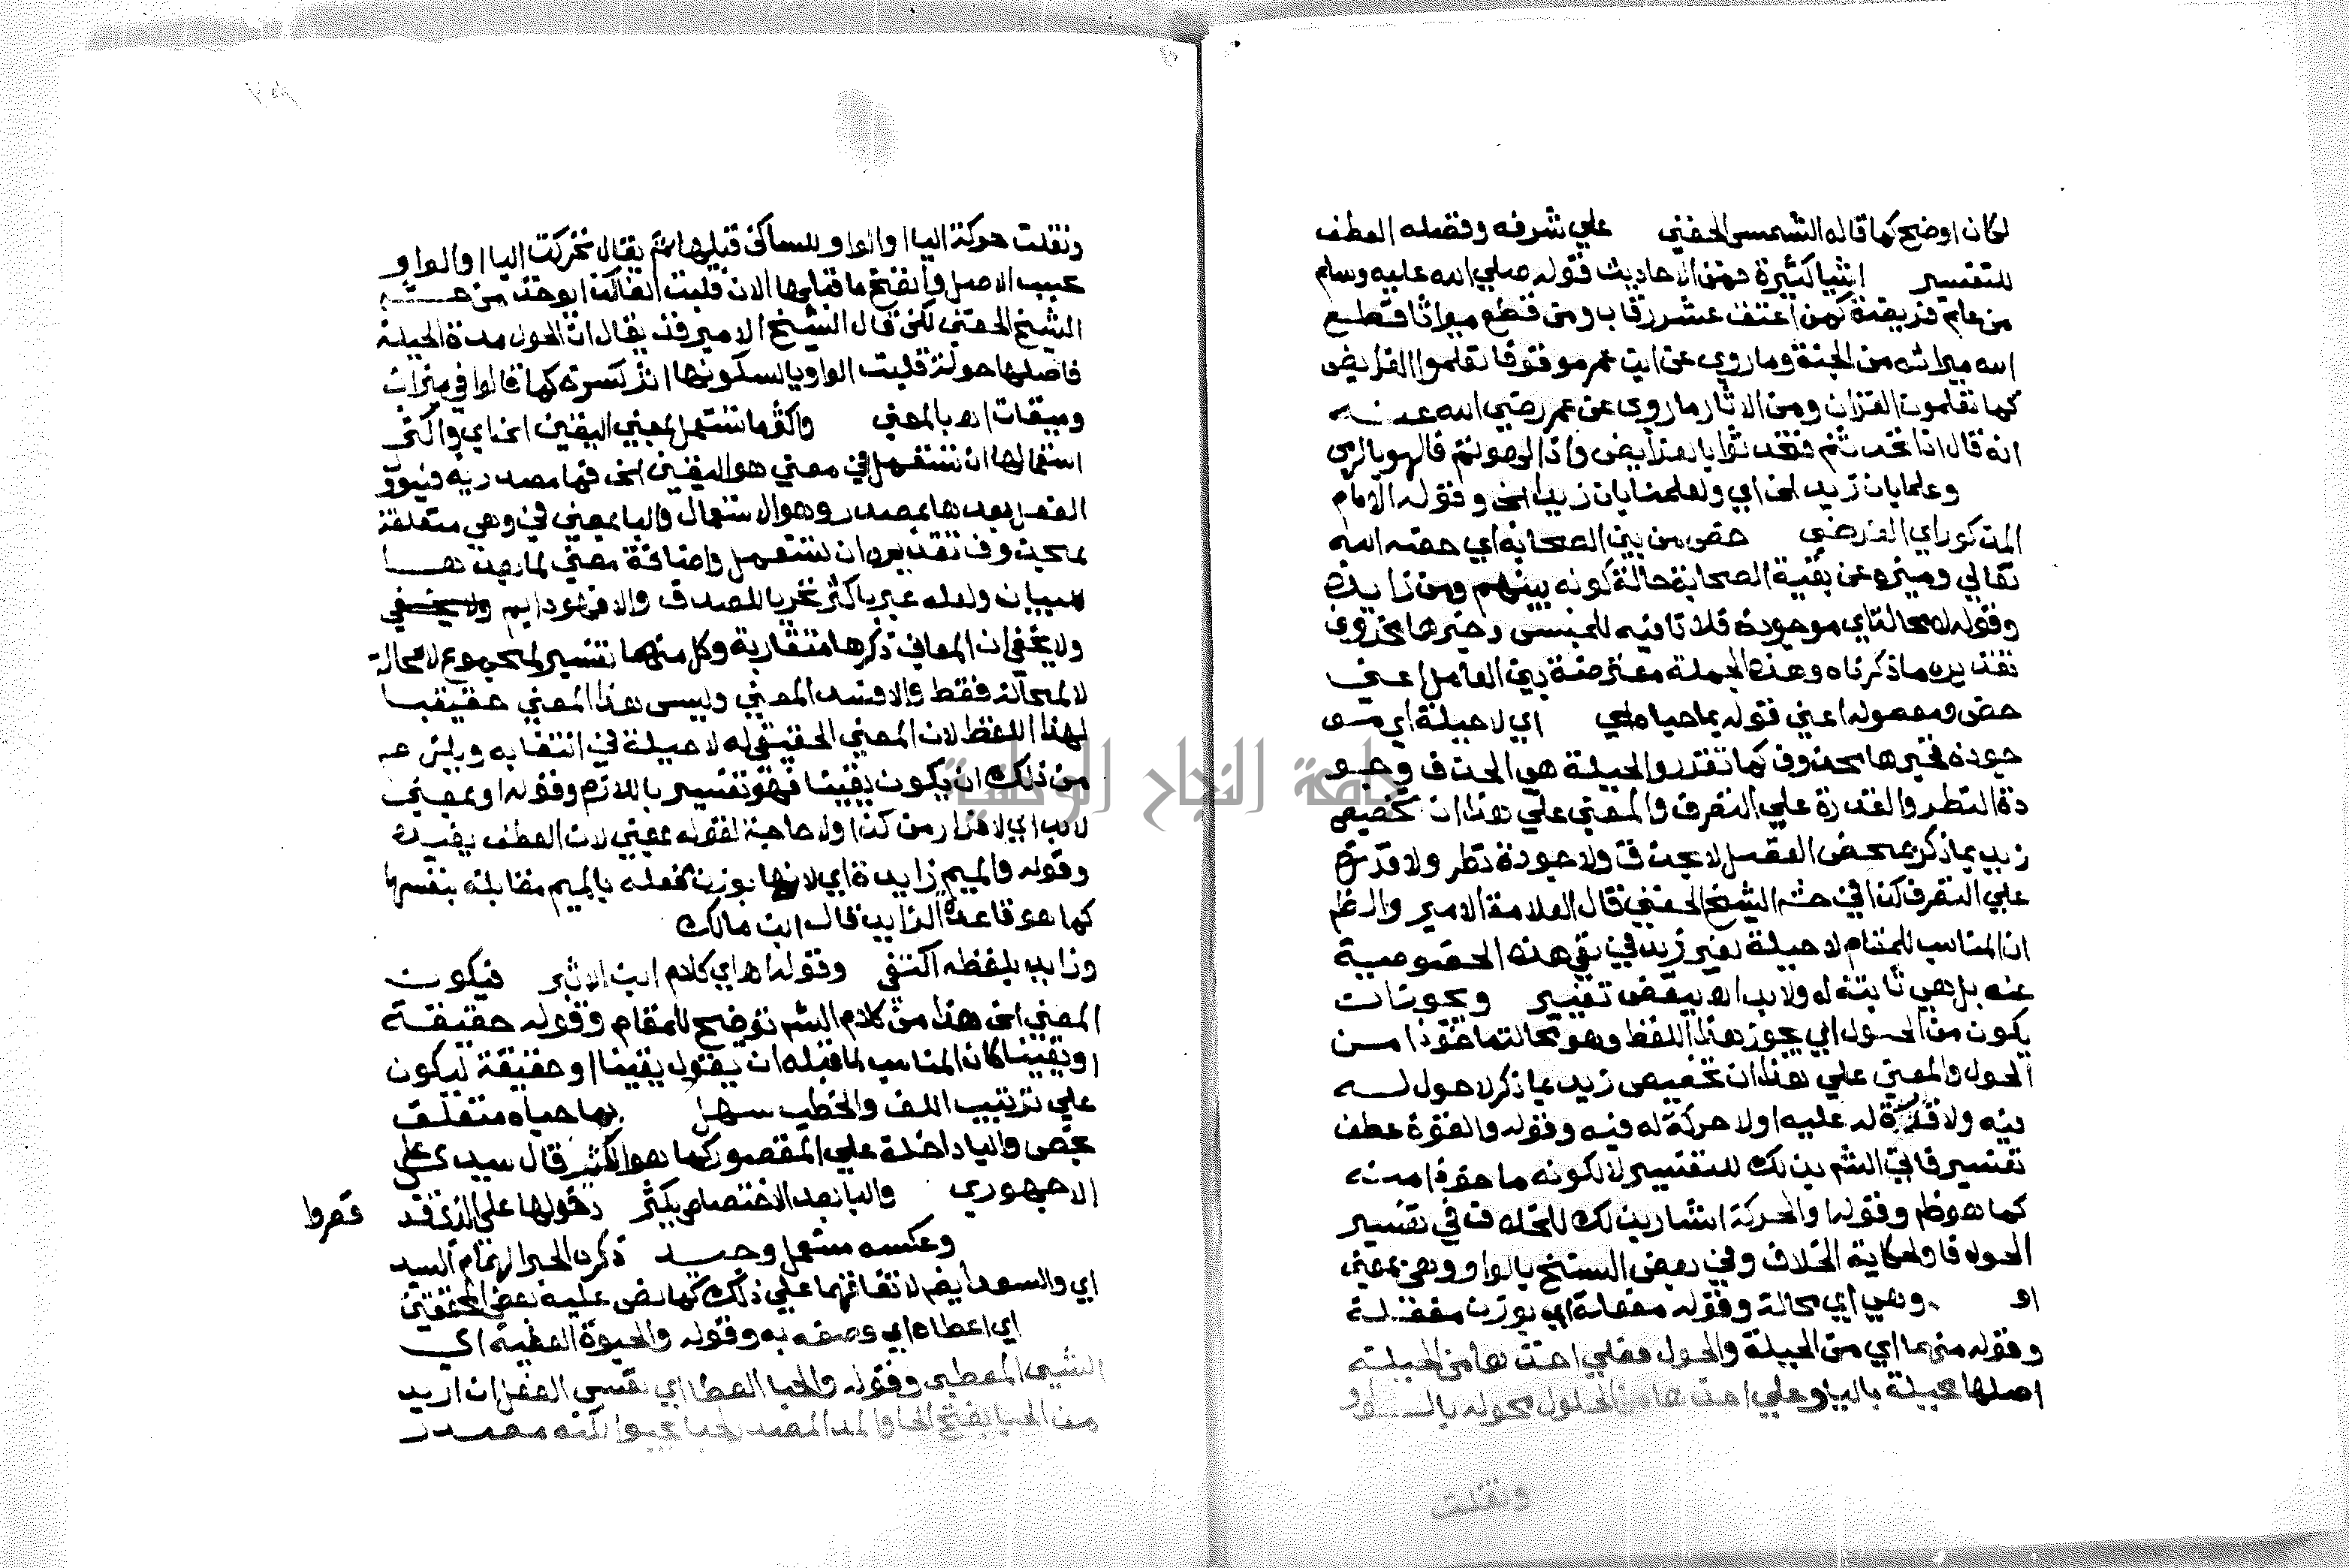 لكان اوضح كما قاله الشمس الحفني علي شرفه وفضله العطف
للتفسير اشيا كثيرة فمن الاحاديث قوله صلي الله عليه وسلم
من علم فريضة كمن اعتق عشر رقاب ومن قطع ميراثا قطع
الله ميراثه من الجنة وما روي عن ابن عمر موقوفا تعلموا الفرايض
كما تعلمون القران ومن الاثار ما روي عن عمر رضي الله عنه
انه قال اذا تحدثتم فتحدثوا بالفرايض واذا لهوتم فالهوا بالرمي
وعلما بان زيدا الخ اي ولعلمنا بان زيدا الخ وقوله الامام
المذكور اي الفرضي خص من بين الصحابة اي خصه الله
تعالي وميزه عن بقية الصحابة حالة كونه بينهم ومن زايدة
وقوله لا محالة اي موجودة فلا نافيه للجنس وخبرها محذوف
تقديره ما ذكرناه وهذه الجملة معترضة بين العامل اعني
خص ومعموله اعني قوله بما حباه اي لا حيلة اي مو
جودة فخبرها محذوف كما تقدر والحيلة هي الحذق وجو
دة النظر والقدرة علي التصرف والمعني علي هذا ان تخصيص
زيد بما ذكر بمحض الفضل لا بحذق ولا جودة نظر ولا قدرة
علي التصرف كذا في حشه الشيخ الحفني قال العلامة الامير والظ
ان المناسب للمقام لا حيلة لغير زيد في نفي هذه الخصوصية
عنه بل هي ثابتة له ولا بد اه ببعض تغيير ويجوز ان
يكون من الحول اي يجوز هذا اللفظ وهو محالة ماخوذا من
الحول والمعني علي هذا ان تخصيص زيد بما ذكر لا حول له
فيه ولا قدرة له عليه اولا حركة له فيه وقوله والقوة عطف
تفسير فاتي الشم بذلك للتفسير لا لكونه ماخوذا منه
كما هو ظ وقوله او الحركة اشار بذلك للخلاف في تفسير
الحول فاو لحكاية الخلاف وفي بعض النسخ بالواو وهي بمعني
او وهي اي محالة وقوله مفعلة اي بوزن مفعلة
وقوله منهما اي من الحيلة والحول فعلي اخذها من الحيلة
اصلها محيلة باليا وعلي اخذها من الحول محولة بالواو
ونقلت
ونقلت حركة اليا او الواو للساكن قبلها ثم يقال تحركت اليا او الواو
بحسب الاصل وانفتح ما قبلها الان قلبت الفا كذا يوخذ من حشه
الشيخ الحفني لكن قال الشيخ الامير قد يقال ان الحول مدة الحيلة
فاصلها حولة قلبت الواو يا لسكونها اثر كسرة كما قالوا في ميزان
وميقات اه بالمعني واكثر ما تستعمل بمعني اليقين الخ اي واكثر
استعمالها ان تستعمل في معني هو اليقين الخ فما مصدرية فيؤو
الفعل بعدها بمصدر وهو الاستعمال والبا بمعني في وهي متعلقة
بمحذوف تقديره ان تستعمل واضافة معني لما بعدها
للبيان ولعله عبر باكثر تحريا للصدق والا فهو دايم
ولا يخفي ان المعاني ذكرها متقاربة وكل منهما تفسير لمجموع لا محالة
لا لمحالة فقط والا فسد المعني وليس هذا المعني حقيقيا
لهذا اللفظ لان المعني الحقيقي له لا حيلة في انتفايه ويلزمه
من ذلك ان يكون يقينا فهو تفسير باللازم وقوله او بمعني
لا بد اي لا فرار من كذا ولا حاجة لقوله بمعني لان العطف يفيده
وقوله والميم زايدة اي لانها بوزن مفعلة بالميم مقابلة بنفسها
كما هو قاعدة الزايد قال ابن مالك
وزايد بلفظه اكتفي وقوله اه اي كلام ابن الاثير فيكون
المعني الخ هذا من كلام الشم توضيح للمقام وقوله حقيقة
او يقينا كان المناسب لما قبله ان يقول يقينا او حقيقة ليكون
علي ترتيب اللف والخطب سهل بما حباه متعلق
بخص والبا داخلة علي المقصور كما هو الكثير قال سيدي علي
الاجهوري والبا بعد الاختصاص يكثر دخولها علي الذي قد
قصروا
وعكسه مستعمل وجيد ذكره الحبر الهمام السيد
اي والسعد ايضا لاتفاقهما علي ذلك كما نص عليه بعض المحققين
اي اعطاه اي وصفه به وقوله والحبوة العطية اي
الشيي المعطي وقوله والحبا العطا اي نفس الفعل ان اريد
من الحبا بفتح الحا والمد المصدر